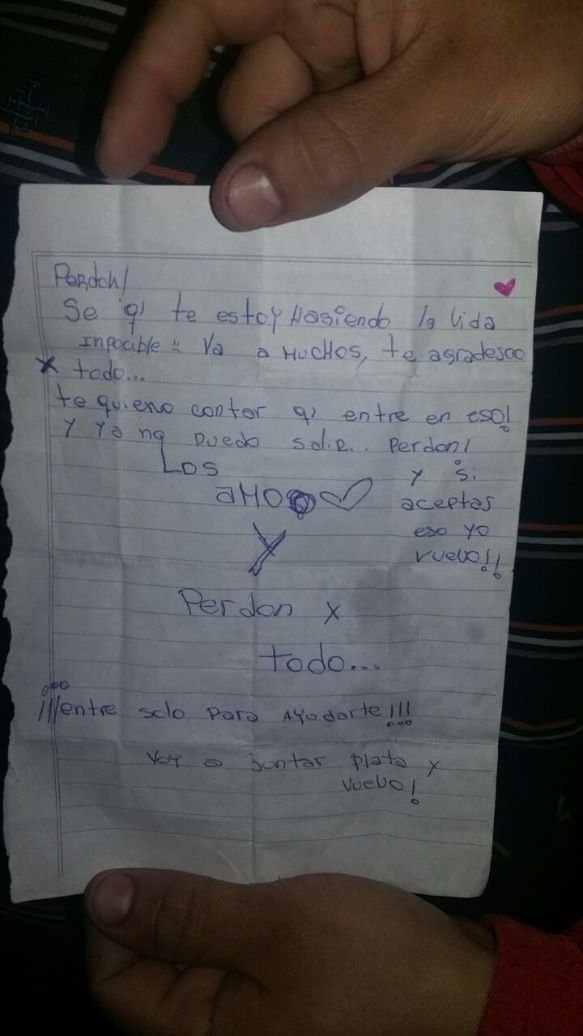 Perdon!
Se q' te estoy Hasiendo la vida
inpocible!! Va a MUCHOS, te agradesco
x todo...
te quiero contar q' entre en eso!
y ya no puedo salir.. Perdon!
Los
aMO
y si
aceptas
eso yo
vuelvo!!
y
Perdon x
todo...
¡¡¡entre solo para Ayudarte!!!
Voy a juntar plata y
vuelvo!